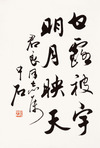 白露被宇
明月映天
君良同志属
中石